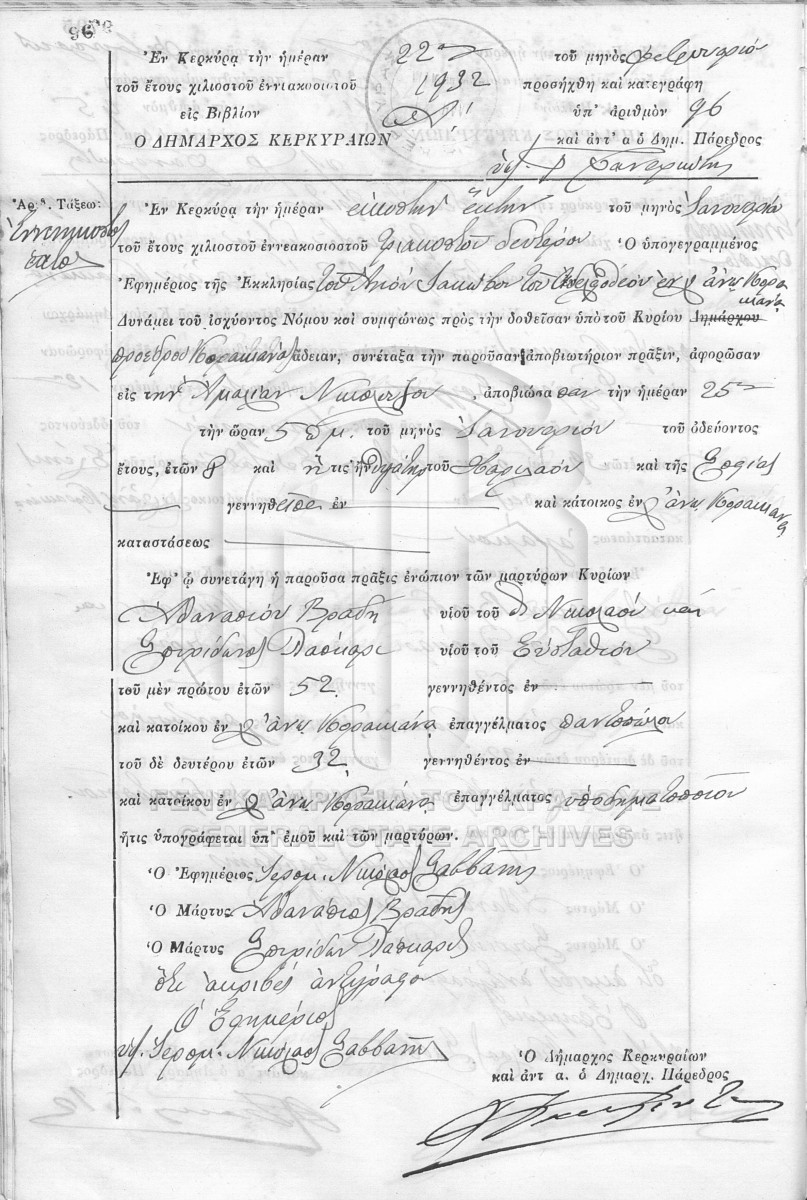 96
Ἐν Κερκύρᾳ τὴν ἡμέραν 22αν τοῦ μηνὸς Φεβρουαρίου
τοῦ ἔτους χιλιοστοῦ ἐννιακοσιοτοῦ 1932 προσήχθη καὶ κατεγράφη
εἰς Βιβλίον ὑπ' ἀριθμὸν 96
Ο ΔΗΜΑΡΧΟΣ ΚΕΡΚΥΡΑΙΩΝ καὶ ἀντ' α ὁ Δημ. Πάρεδρος
Ἀρ. Τάξεω:
Ἐν Κερκύρᾳ τὴν ἡμέραν εἰκοστὴν ἕκτην τοῦ μηνὸς Ἰανουαρίου
τοῦ ἔτους χιλιοστοῦ ἐννεακοσιοστοῦ τριακοστοῦ δευτέρου Ὁ ὑπογεγραμμένος
Ἐφημέριος τῆς Ἐκκλησίας τοῦ Ἁγίου Ἰακώβου τοῦ Ἀδελφοθέου ἐν Ἄνω Κορα
κιάνᾳ
Δυνάμει τοῦ ἰσχύοντος Νόμου καὶ συμφώνως πρὸς τὴν δοθεῖσαν ὑπὸ τοῦ Κυρίου Δημάρχου
προέδρου Κορακιάνας ἄδειαν, συνέταξα τὴν παροῦσαν ἀποβιωτήριον πρᾶξιν, ἀφορῶσαν
εἰς τὴν Ἀμαλίαν , ἀποβιώσασαν τὴν ἡμέραν 25ην
τὴν ὥραν 5 μ.μ. τοῦ μηνὸς Ἰανουαρίου τοῦ ὁδεύοντος
ἔτους, ἐτῶν 8 καὶ ἥτις ἦν θυγάτηρ τοῦ Χαριλάου καὶ τῆς Σοφίας
γεννηθεῖσα ἐν καὶ κάτοικος ἐν Ἄνω Κορακιάνᾳ
καταστάσεως
Ἐφ' ᾧ συνετάγη ἡ παροῦσα πρᾶξις ἐνώπιον τῶν μαρτύρων Κυρίων
Ἀθανασίου Βραδῆ υἱοῦ τοῦ Νικολάου καὶ
Σπυρίδωνος Λάσκαρι υἱοῦ τοῦ Εὐσταθίου
τοῦ μὲν πρώτου ἐτῶν 52 γεννηθέντος ἐν
καὶ κατοίκου ἐν Ἄνω Κορακιάνᾳ ἐπαγγέλματος παντοπώλου
τοῦ δὲ δευτέρου ἐτῶν 32 γεννηθέντος ἐν
καὶ κατοίκου ἐν Ἄνω Κορακιάνᾳ ἐπαγγέλματος ὑποδηματοποιοῦ
ΓΕΝΙΚΑ ΑΡΧΕΙΑ ΤΟΥ ΚΡΑΤΟΥΣ
ἥτις ὑπογράφεται ὑπ' ἐμοῦ καὶ τῶν μαρτύρων.
GENERAL STATE ARCHIVES
Ὁ Ἐφημέριος Ἱερομ. Νικόλαος Σαββάνης
Ὁ Μάρτυς Ἀθανάσιος Βραδῆς
Ὁ Μάρτυς Σπυρίδων Λάσκαρις
Ὅτι ἀκριβὲς ἀντίγραφον
Ὁ Ἐφημέριος
υγ. Ἱερομ. Νικόλαος Σαββάνης
Ὁ Δήμαρχος Κερκυραίων
καὶ ἀντ α. ὁ Δημαρχ. Πάρεδρος